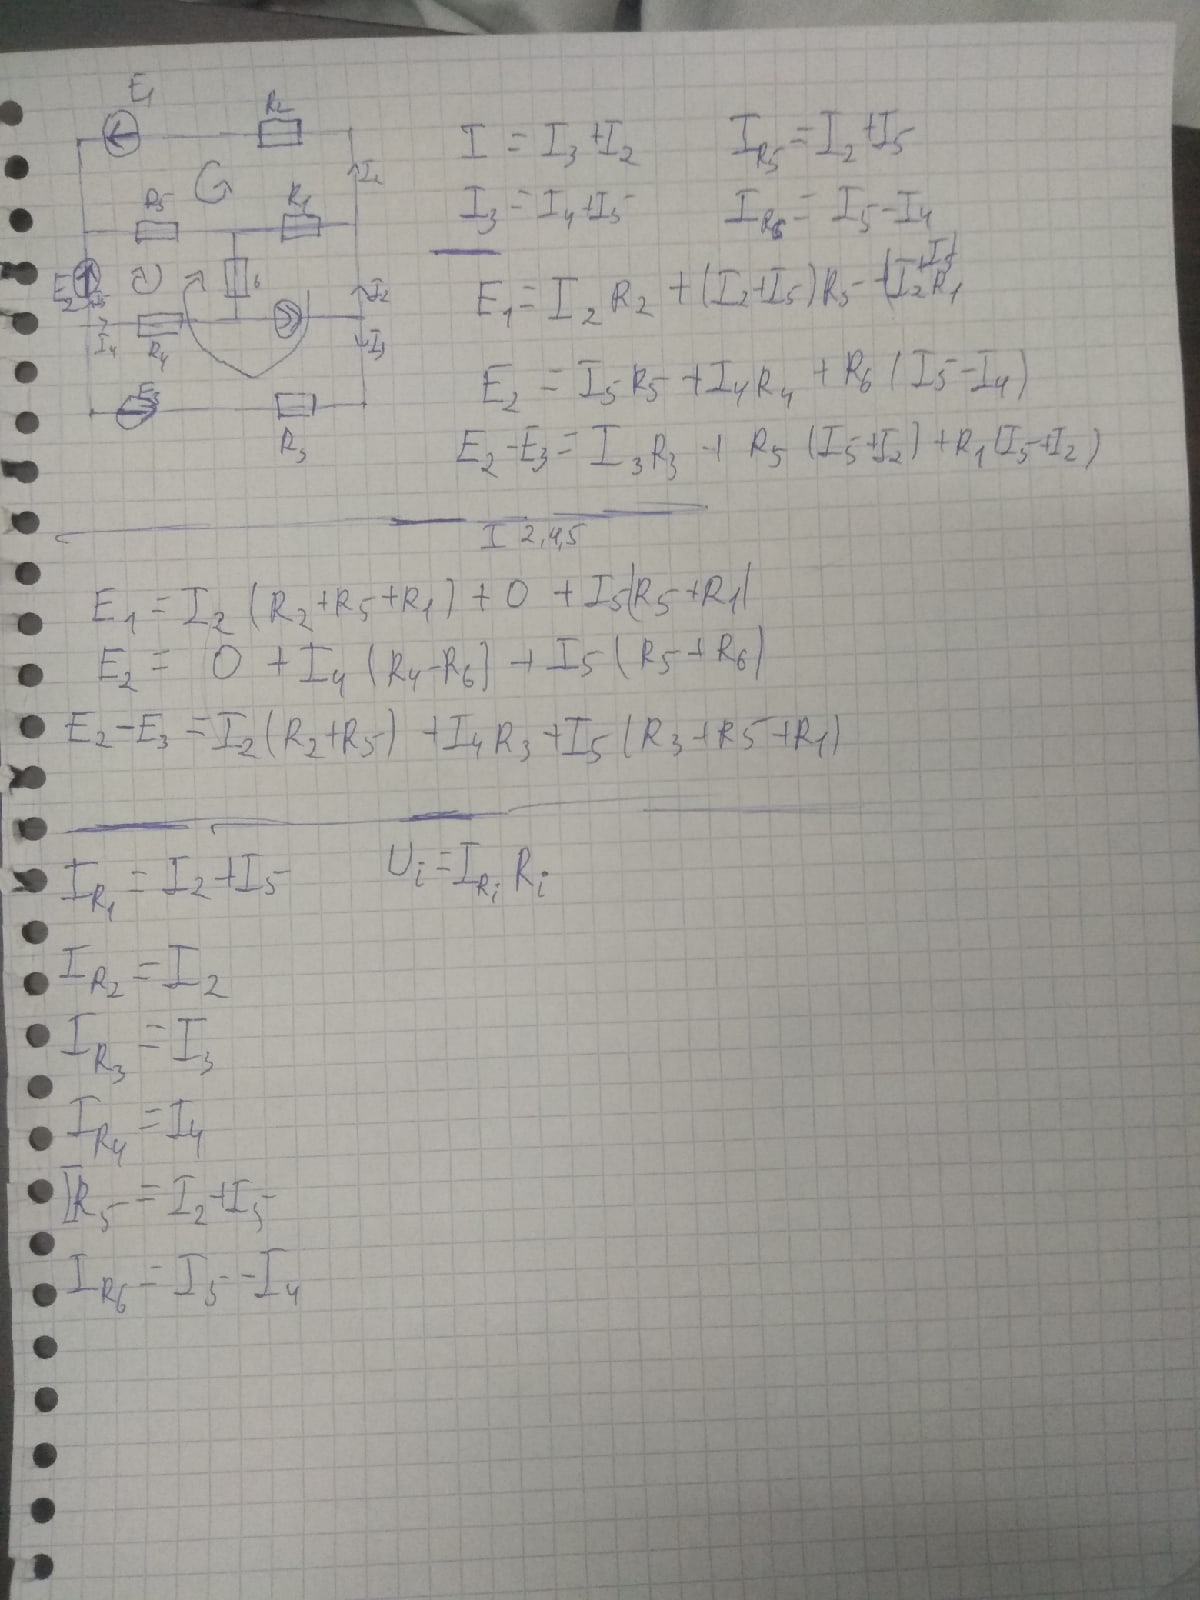 E1
R2
I2
R5
R1
E2
I5
6
I2
I4
R4
I3
E3
R3
I = I3 + I2
IR5 = I2 + I5
I3 = I4 + I5
IR6 = I5 - I4
E1 = I2 R2 + (I2 + I5) R5 + (I2 + I5) R1
E2 = I5 R5 + I4 R4 + R6 (I5 - I4)
E2 - E3 = I3 R3 + R5 (I5 + I2) + R1 (I5 + I2)
I 2,4,5
E1 = I2 (R2 + R5 + R1) + 0 + I5 (R5 + R1)
E2 = 0 + I4 (R4 - R6) + I5 (R5 + R6)
E2 - E3 = I2 (R2 + R5) + I4 R3 + I5 (R3 + R5 + R1)
IR1 = I2 + I5
Ui = IRi Ri
IR2 = I2
IR3 = I3
IR4 = I4
IR5 = I2 + I5
IR6 = I5 - I4